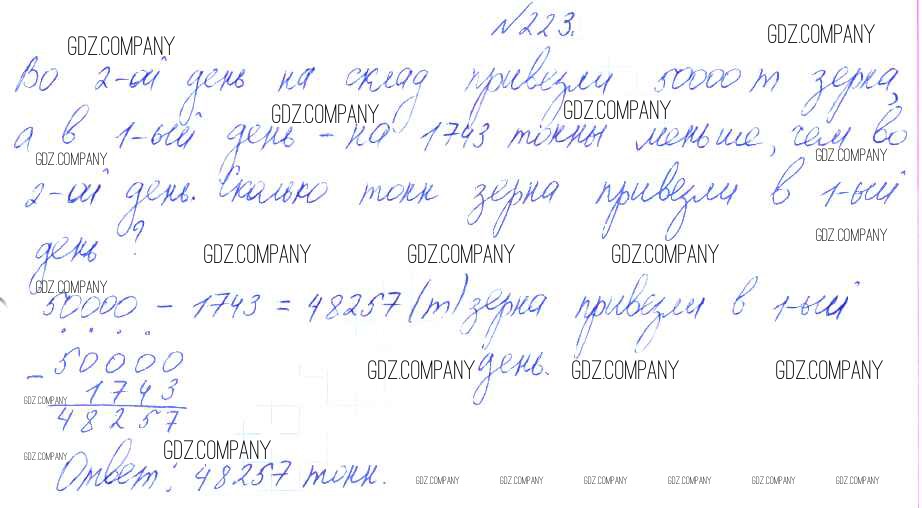 №223.
GDZ.COMPANY GDZ.COMPANY
Во 2-ой день на склад привезли 50000 т зерна,
GDZ.COMPANY GDZ.COMPANY
а в 1-ый день - на 1743 тонны меньше, чем во
GDZ.COMPANY GDZ.COMPANY
2-ой день. Сколько тонн зерна привезли в 1-ый
GDZ.COMPANY
день?
GDZ.COMPANY GDZ.COMPANY GDZ.COMPANY
GDZ.COMPANY
50000 - 1743 = 48257 (т) зерна привезли в 1-ый
день.
GDZ.COMPANY GDZ.COMPANY GDZ.COMPANY
- 50000
1743
GDZ.COMPANY
48257
GDZ.COMPANY
GDZ.COMPANY
Ответ: 48257 тонн.
GDZ.COMPANY GDZ.COMPANY GDZ.COMPANY GDZ.COMPANY GDZ.COMPANY GDZ.COMPANY